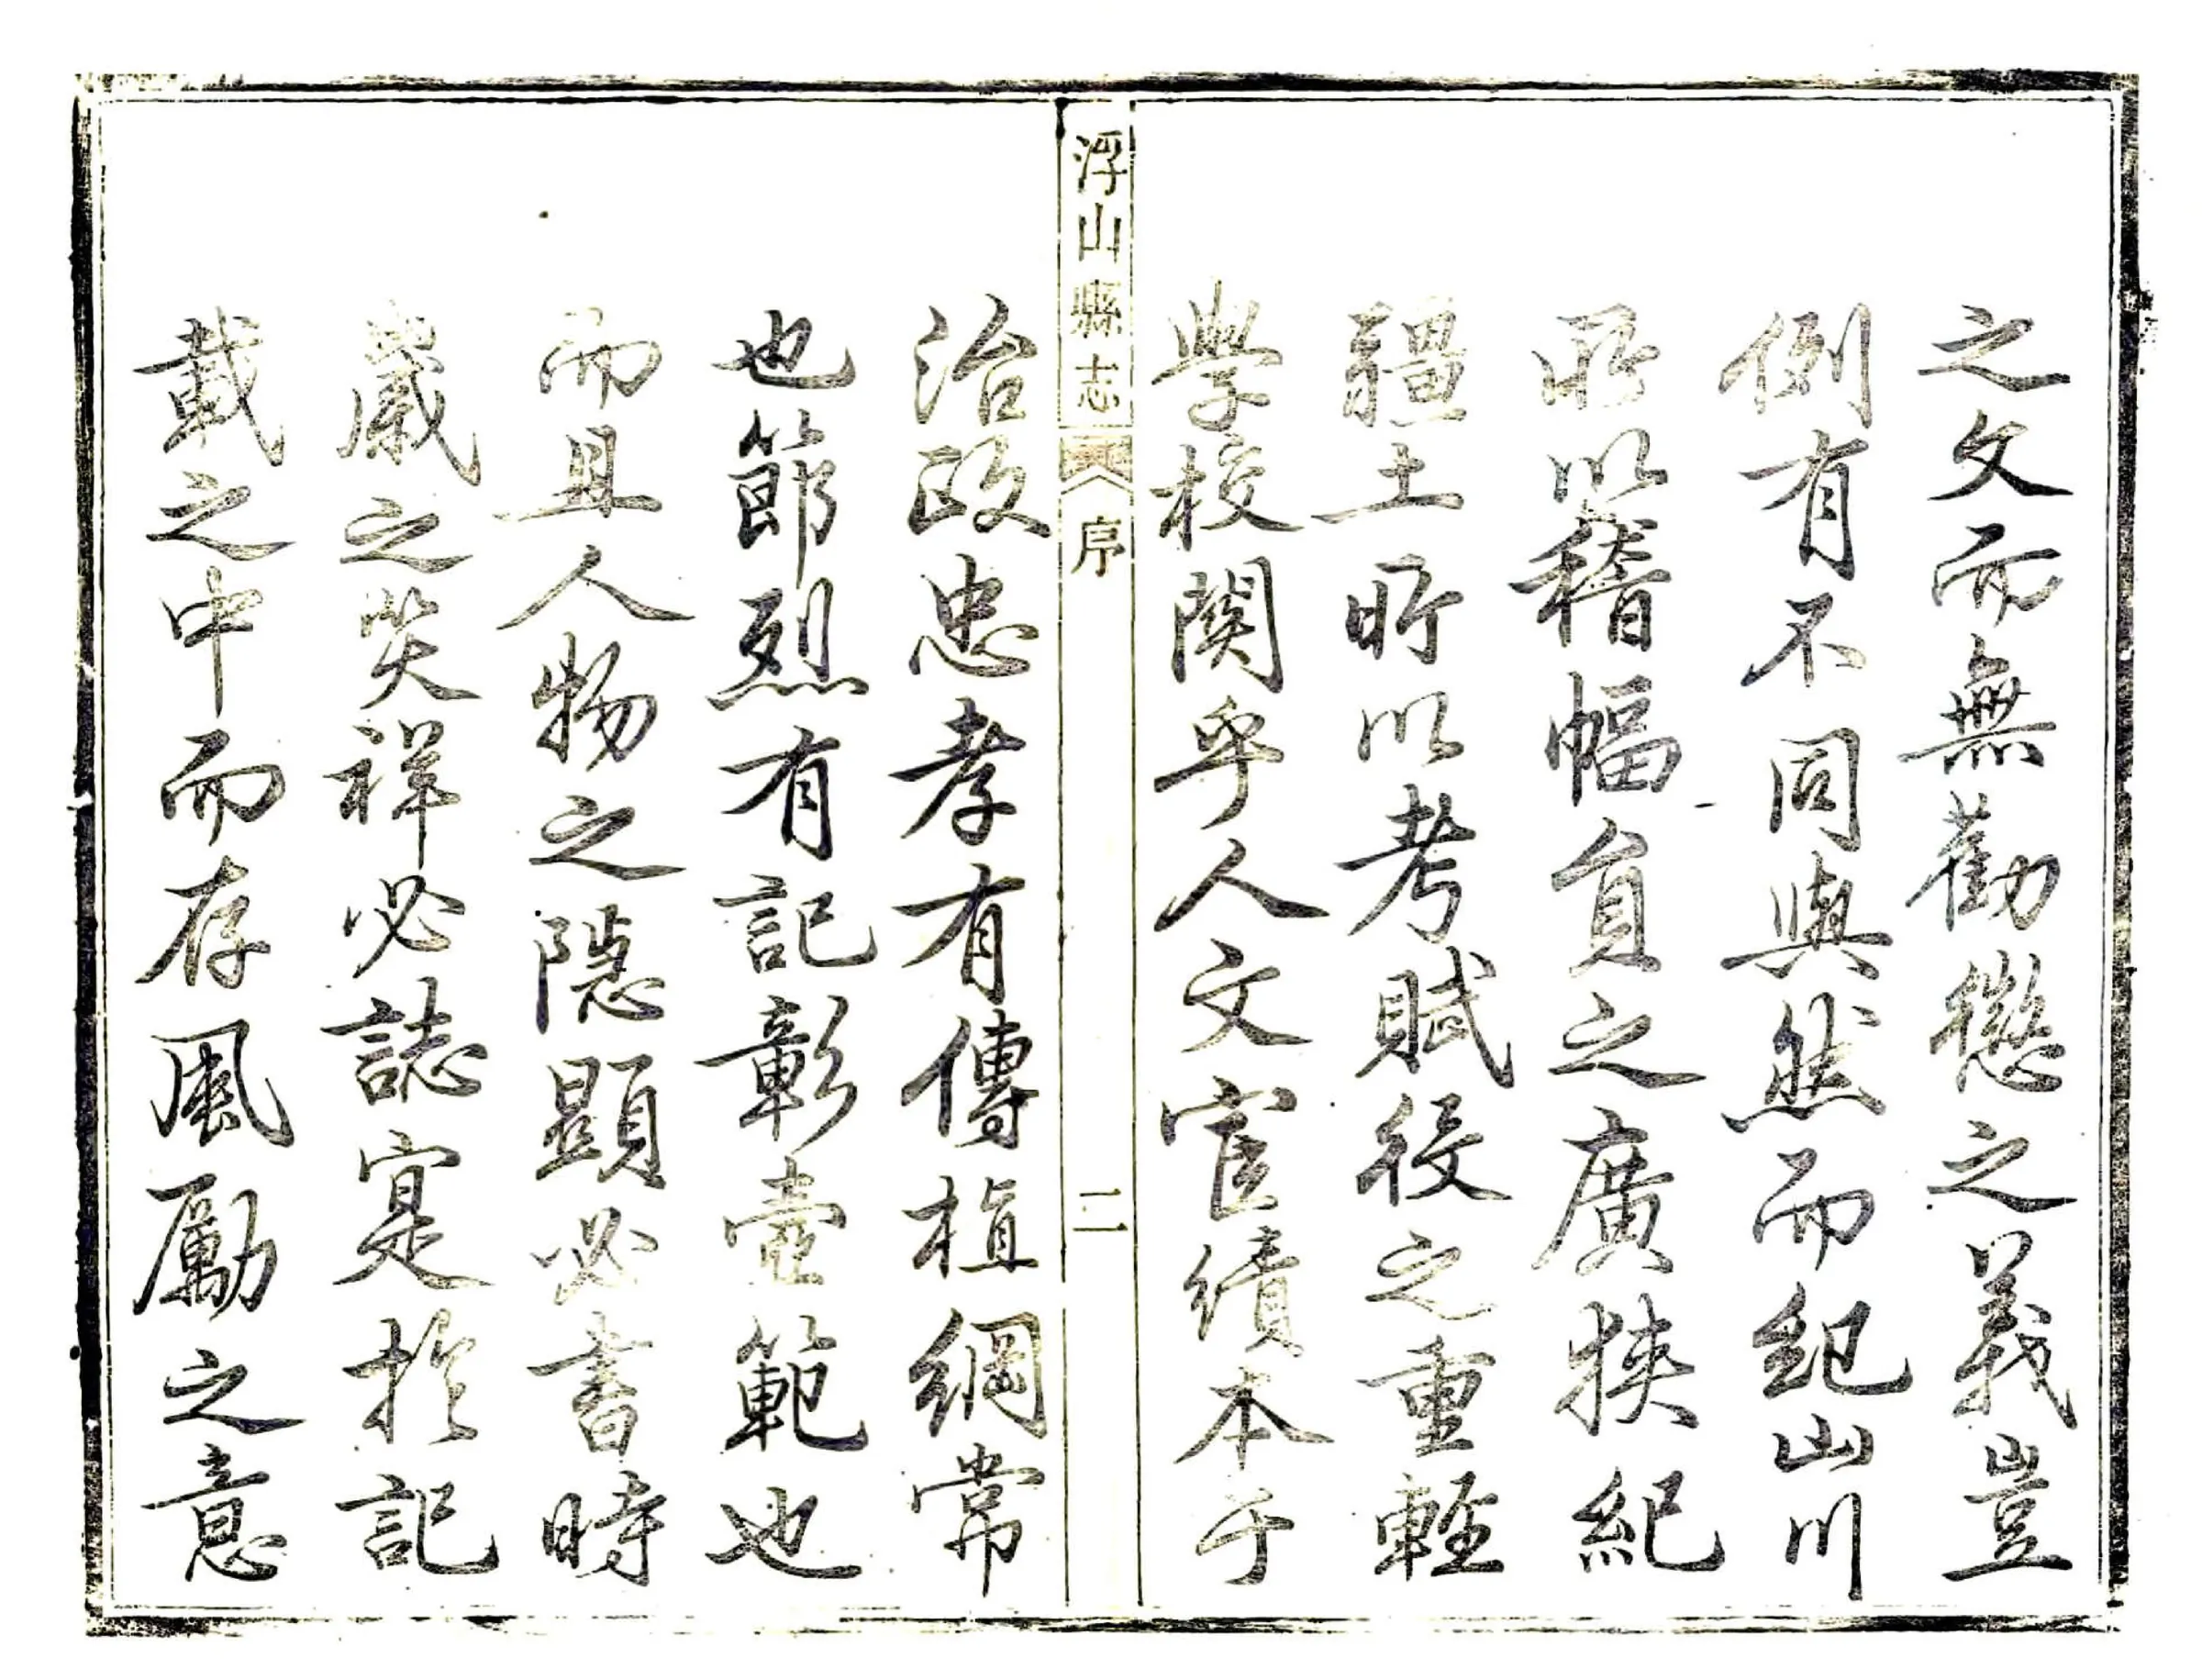 之文而無勸懲之義豈
例有不同與然而紀山川
所以稽幅員之廣狹紀
疆土所以考賦役之重輕
學校関乎人文宦績本于
浮山縣志
序
二
治政忠孝有傳植綱常
也節烈有記彰壼範也
而且人物之隱顯必書時
歲之災祥必誌寔於記
載之中而存風勵之意